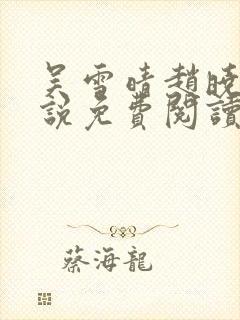 吴雪晴趙曉
說免費閱讀
蔡海龍